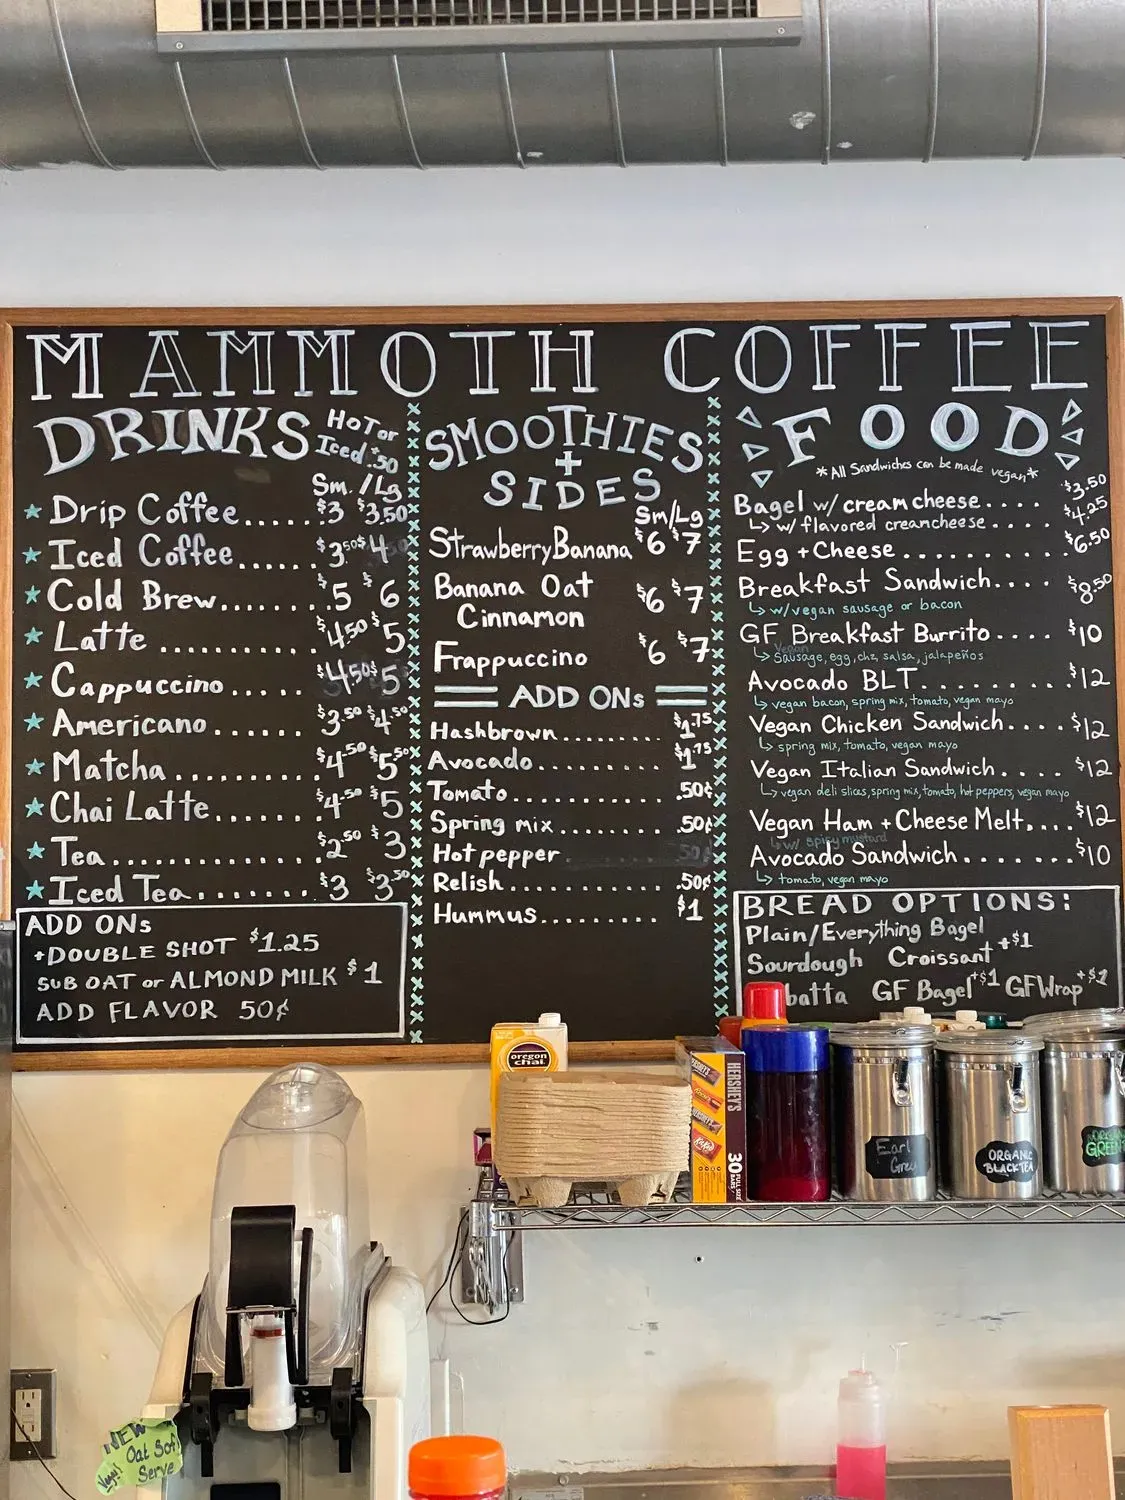 MAMMOTH COFFEE
DRINKS
HOT or
Iced +.50
Sm. / Lg
Drip Coffee...... $3 $3.50
Iced Coffee...... $3.50 $4
Cold Brew....... $5 $6
Latte .......... $4.50 $5
Cappuccino ..... $4.50 $5
Americano ...... $3.50 $4.50
Matcha ......... $4.50 $5.50
Chai Latte....... $4.50 $5
Tea ............ $2.50 $3
Iced Tea ....... $3 $3.50
ADD ONs
+DOUBLE SHOT $1.25
SUB OAT or ALMOND MILK $1
ADD FLAVOR 50¢
SMOOTHIES
+
SIDES
Sm/Lg
Strawberry Banana $6 $7
Banana Oat
Cinnamon $6 $7
Frappuccino $6 $7
ADD ONs
Hashbrown........ $1.75
Avocado.......... $1.75
Tomato........... .50¢
Spring mix....... .50¢
Hot pepper .50¢
Relish .......... .50¢
Hummus.......... $1
FOOD
*All Sandwiches can be made vegan*
Bagel w/ cream cheese.... $3.50
w/ flavored creamcheese .... $4.25
Egg + Cheese .......... $6.50
Breakfast Sandwich.... $8.50
w/vegan sausage or bacon
GF Breakfast Burrito.... $10
Vegan
Sausage, egg, chz, salsa, jalapeños
Avocado BLT......... $12
vegan bacon, spring mix, tomato, vegan mayo
Vegan Chicken Sandwich.... $12
spring mix, tomato, vegan mayo
Vegan Italian Sandwich.... $12
vegan deli slices, spring mix, tomato, hot peppers, vegan mayo
Vegan Ham + Cheese Melt.... $12
w/ spicy mustard
Avocado Sandwich....... $10
tomato, vegan mayo
BREAD OPTIONS:
Plain/Everything Bagel
Sourdough Croissant +$1
batta GF Bagel +$1 GF Wrap +$1
oregon
chai
HERSHEY'S
KitKat
30 FULL SIZE
BARS
Earl
Grey
ORGANIC
BLACK TEA
ORGANIC
GREEN
NEW
Vegan! Oat Sof
Serve